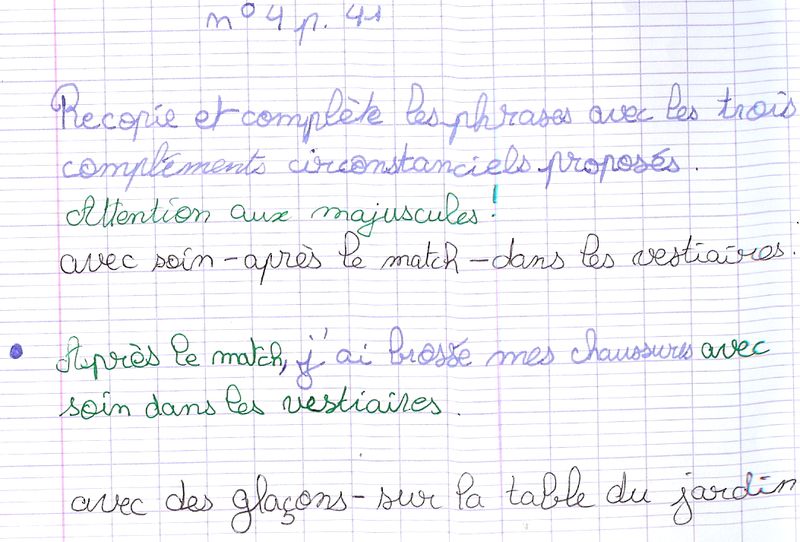 n° 4 p. 41
Recopie et complète les phrases avec les trois
compléments circonstanciels proposés.
Attention aux majuscules !
avec soin - après le match - dans les vestiaires.
Après le match, j'ai brossé mes chaussures avec
soin dans les vestiaires.
avec des glaçons - sur la table du jardin